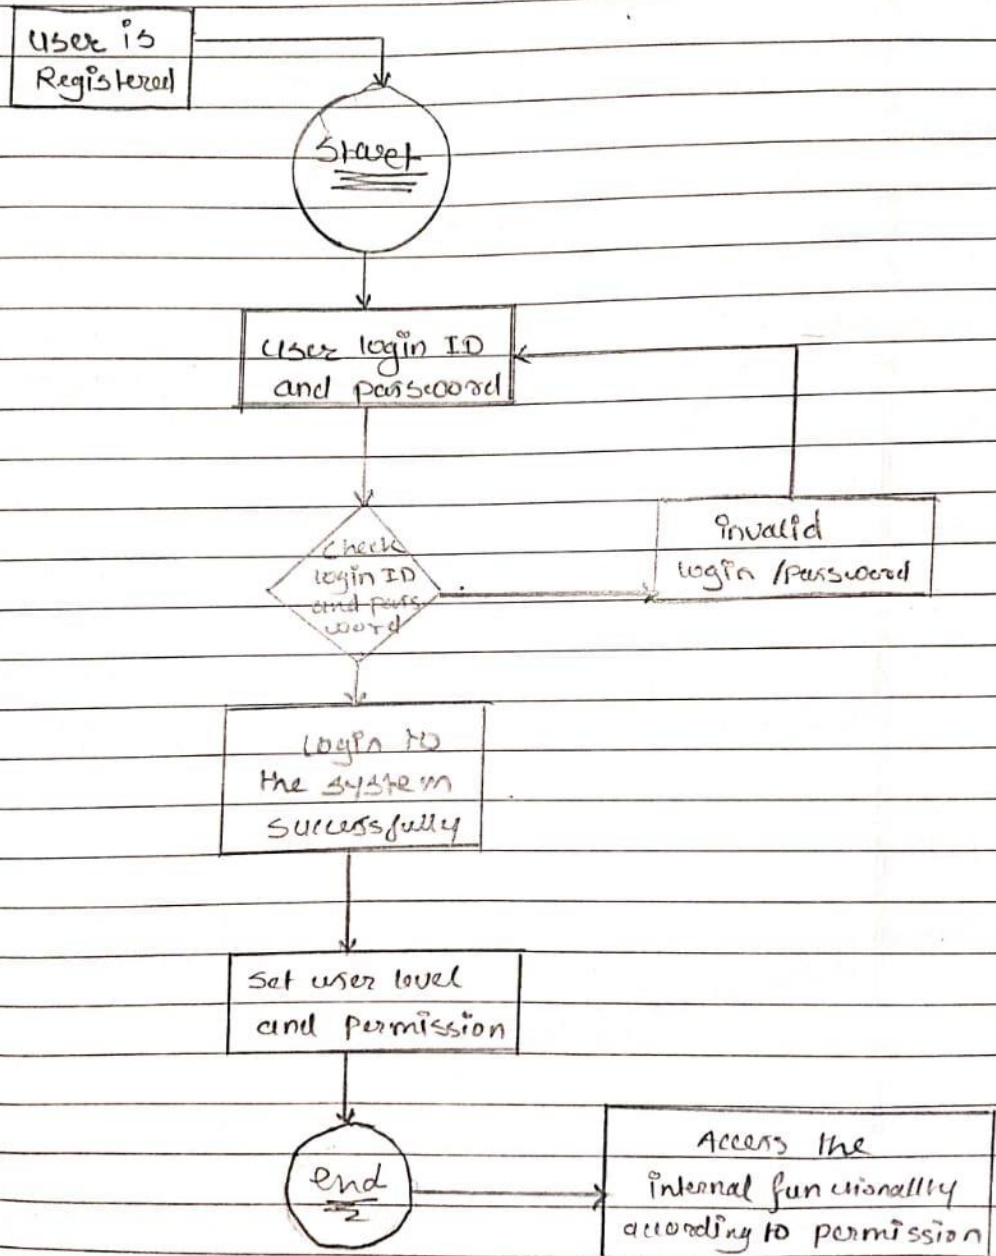 User is
Registered
Start
User login ID
and password
Check
login ID
and pass
word
invalid
login /password
Login to
the system
Successfully
Set user level
and permission
end
Access the
internal functionallity
according to permission